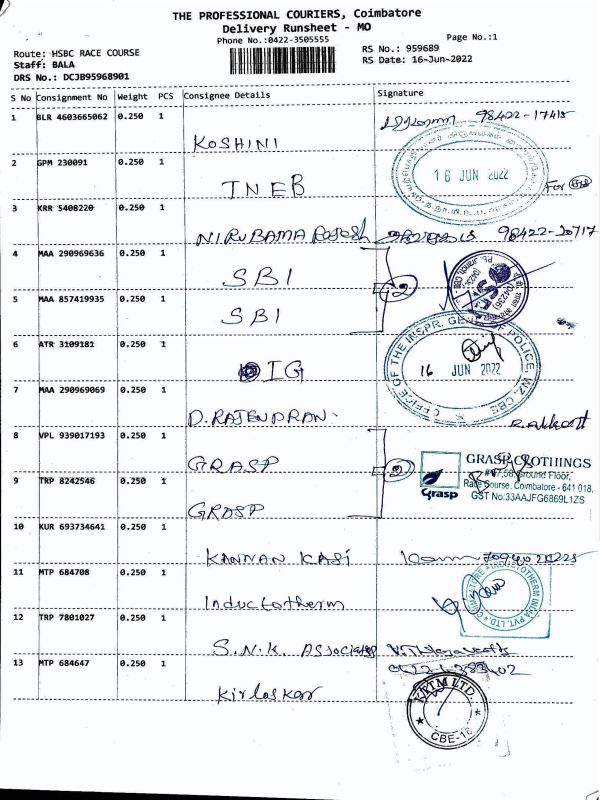 THE PROFESSIONAL COURIERS, Coimbatore
Delivery Runsheet - MO
Phone No.:0422-3505555
Page No.:1
Route: HSBC RACE COURSE
RS No.: 959689
Staff: BALA
RS Date: 16-Jun-2022
DRS No.: DCJB95968901
S No Consignment No Weight PCS Consignee Details Signature
1 BLR 4603665062 0.250 1 KOSHINI 98422-17415
2 GPM 230091 0.250 1 TNEB
16 JUN 2022
For
3 KRR 5408220 0.250 1 NIRUBAMA Rajesh 98422-20717
4 MAA 290969636 0.250 1 SBI
2
5 MAA 857419935 0.250 1 SBI
6 ATR 3109181 0.250 1 IG
OFFICE OF THE INSPR. GENERAL OF POLICE, WZ, CBE
16 JUN 2022
7 MAA 290969069 0.250 1 D. RAJENDRAN.
8 VPL 939017193 0.250 1 GRASP
2
Grasp
GRASP CLOTHINGS
Ground Floor,
Race Course, Coimbatore - 641 018.
GST No:33AAJFG6869L1ZS
9 TRP 8242546 0.250 1 GRASP
10 KUR 693734641 0.250 1 KANNAN KASI
11 MTP 684708 0.250 1 Inductotherm
COIMBATORE * INDUCTOTHERM INDIA PVT. LTD *
12 TRP 7801027 0.250 1 S.N.K. Associates
13 MTP 684647 0.250 1 Kirloskar
LTD.
CBE-18